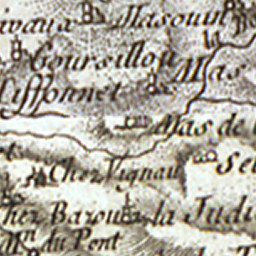 ivaux Masouin
Coursillon
Mas
Siffonnet
Mas de
Chez Vignau
Chez Barou la Judi
Mn. du Pont